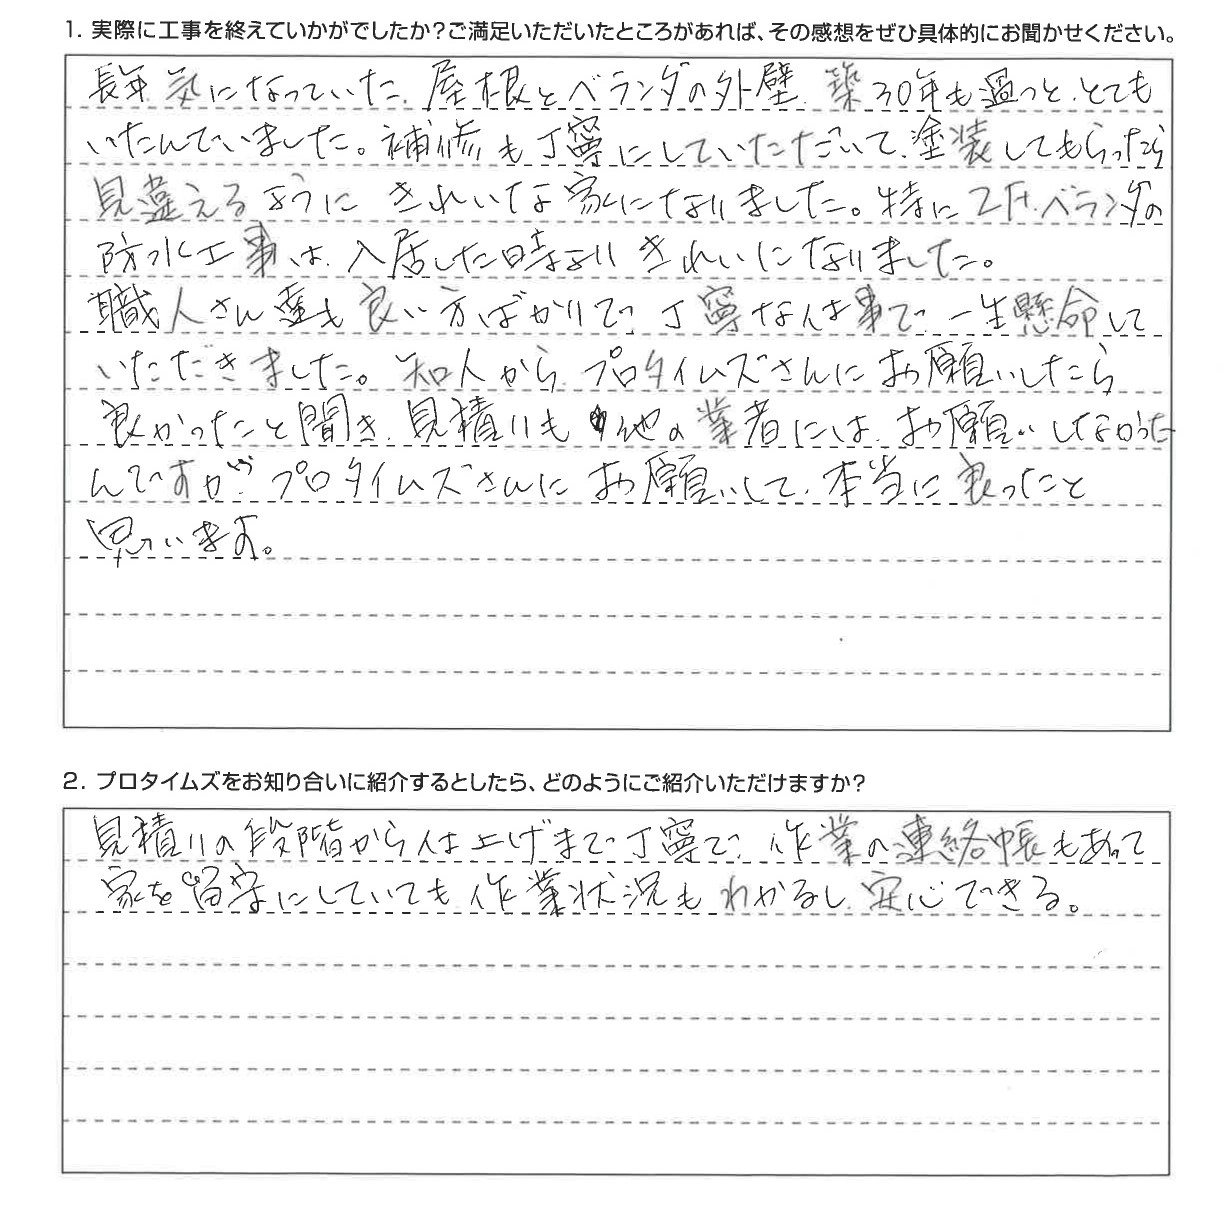 1. 実際に工事を終えていかがでしたか?ご満足いただいたところがあれば、その感想をぜひ具体的にお聞かせください。
長年気になっていた、屋根とベランダの外壁、築30年も過つと、とても
いたんでいました。補修も丁寧にしていただいて、塗装してもらったら
見違えるようにきれいな家になりました。特に2F、ベランダの
防水工事は、入居した時よりきれいになりました。
職人さん達も良い方ばかりで、丁寧な仕事で、一生懸命して
いただきました。知人から、プロタイムズさんにお願いしたら
良かったと聞き、見積りも他の業者には、お願いしなかった
んですが、プロタイムズさんにお願いして、本当に良ったと
思います。
2. プロタイムズをお知り合いに紹介するとしたら、どのようにご紹介いただけますか?
見積りの段階から仕上げまで丁寧で、作業の連絡帳もあって
家を留守にしていても、作業状況もわかるし、安心できる。